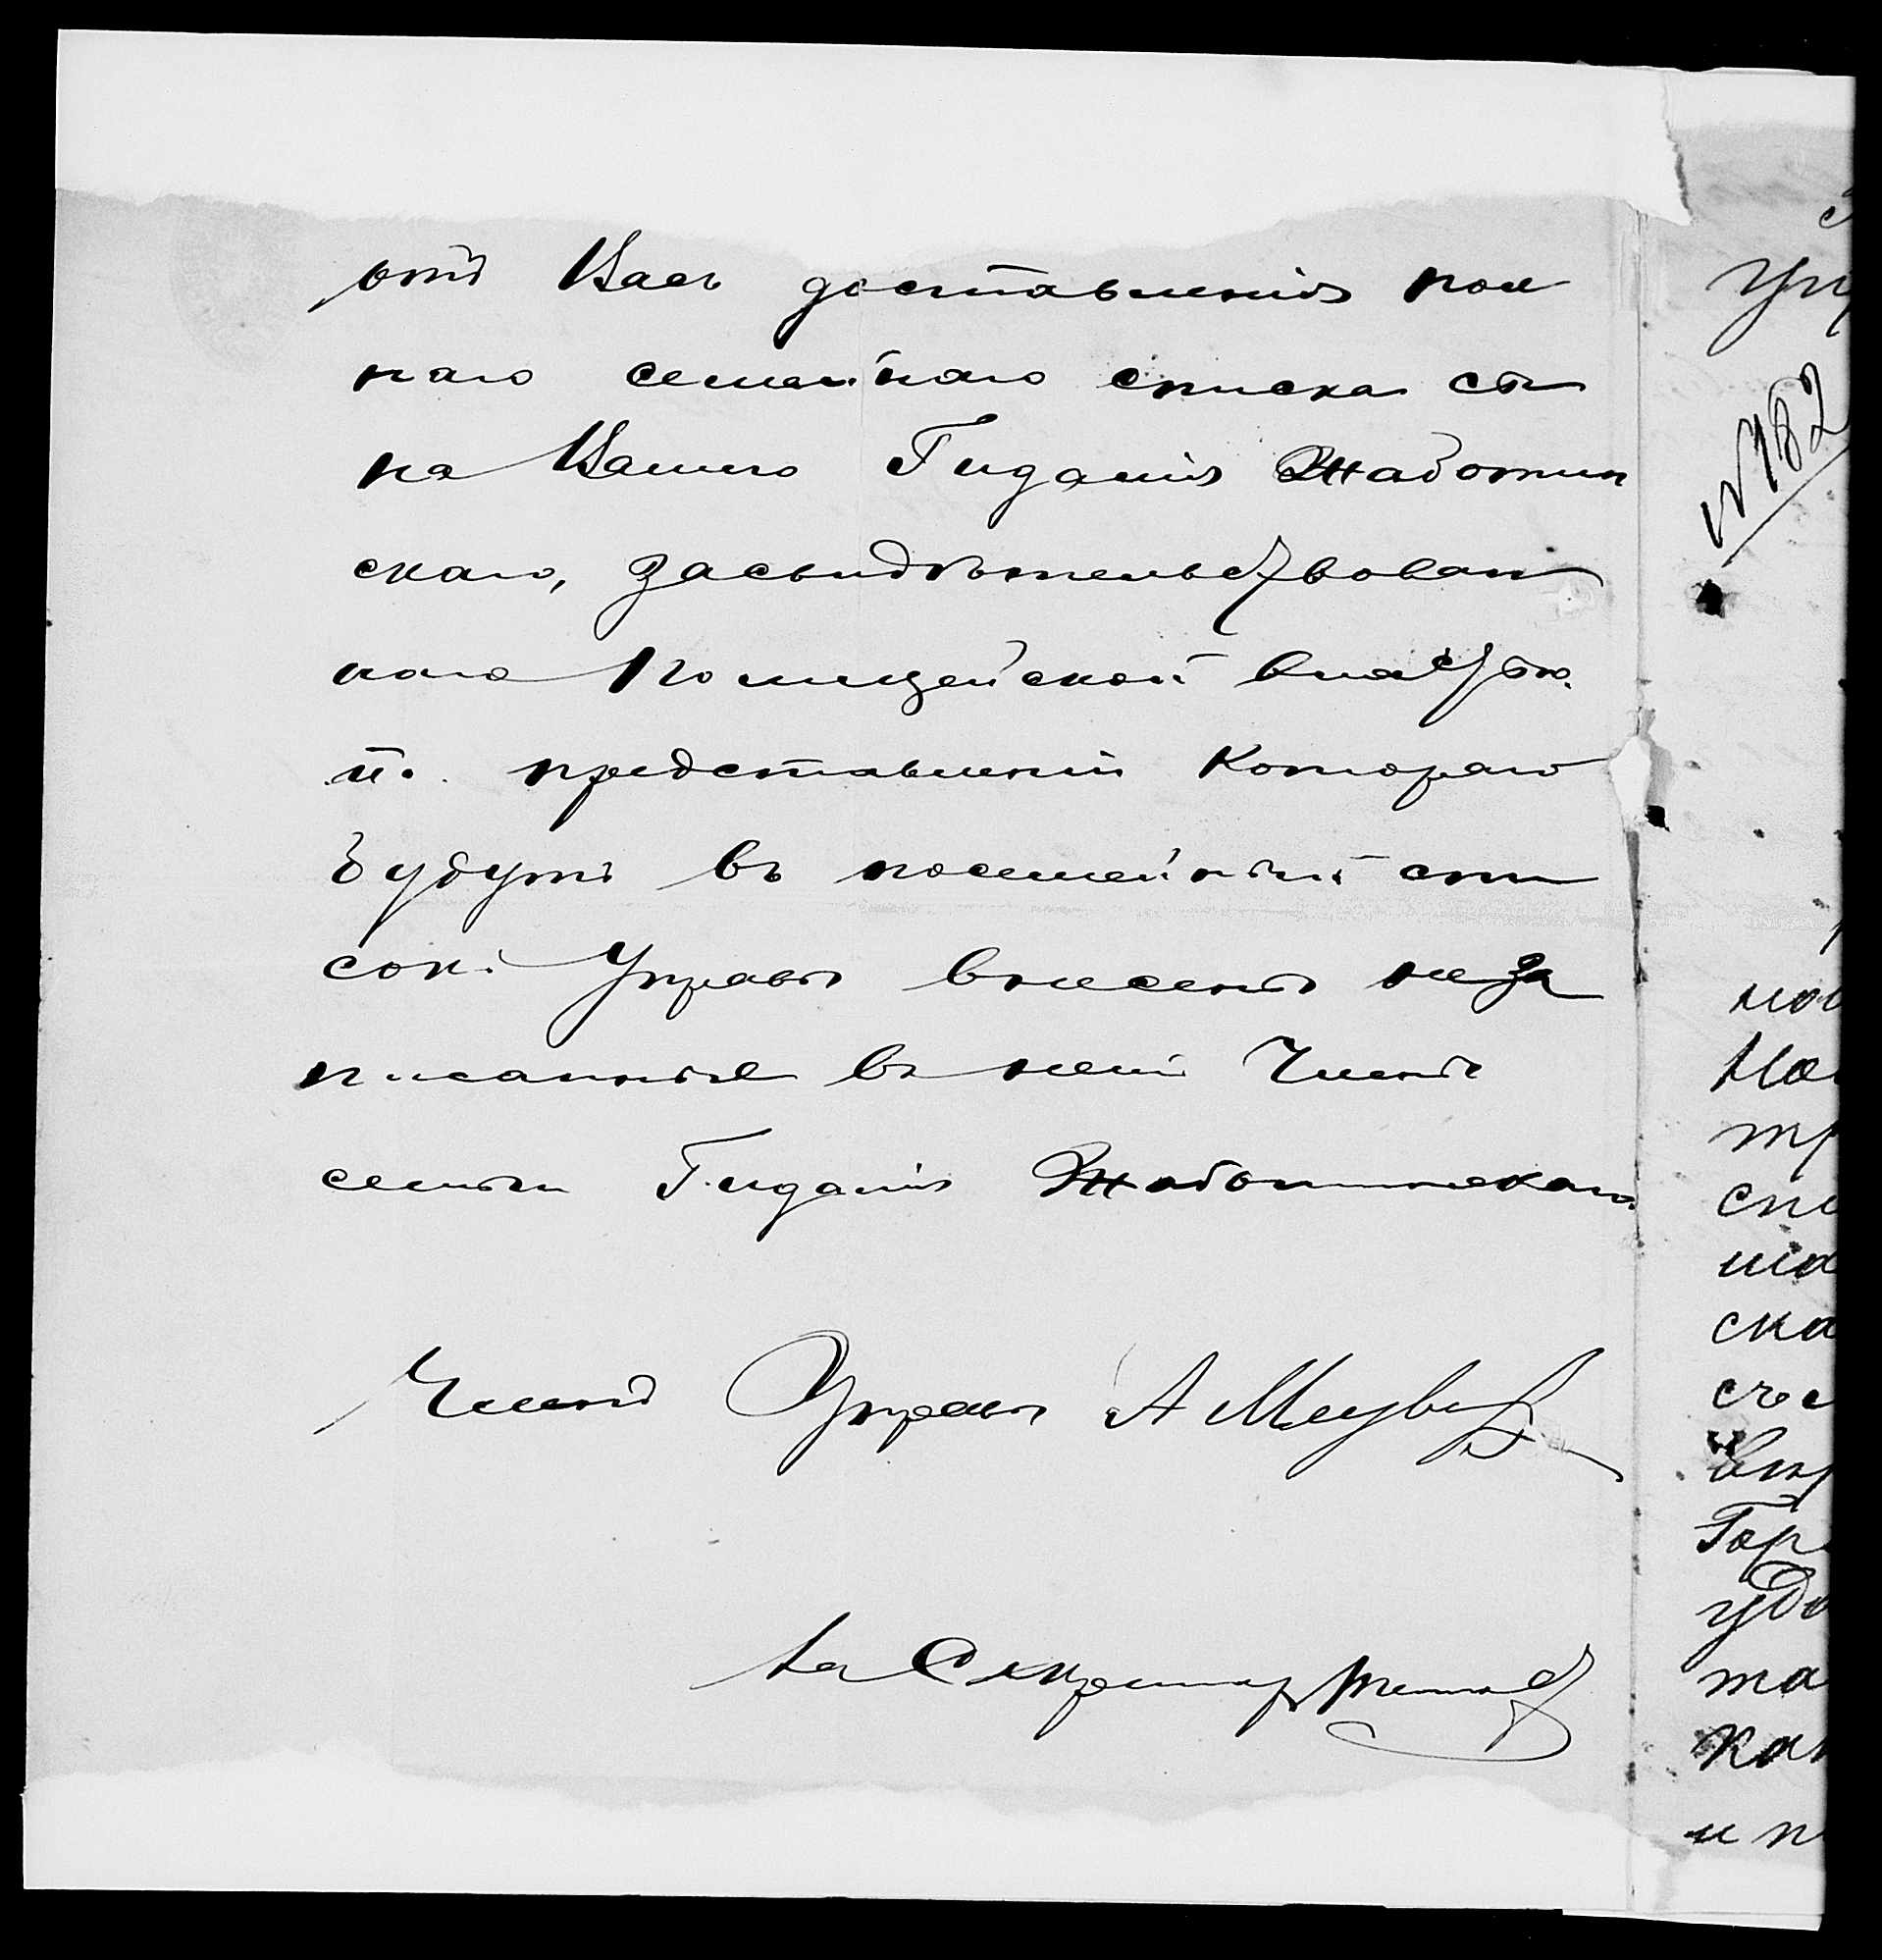 отъ Васъ доставленія пол
наго семейнаго списка сы
на Вашего Гидалія Жаботин
скаго, засвидѣтельствован
наго Полицейской властью.
по представленіи котораго
будутъ въ посемейный спи
сокъ Управы внесены неза
писанные въ немъ Члены
семьи Гидалія Жаботинскаго.
Членъ Управы А
За Секретаря
№ 182